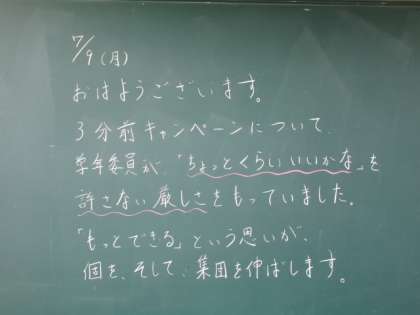 7/9(月)
おはようございます。
3分前キャンペーンについて、
学年委員が、「ちょっとくらいいいかな」を
許さない厳しさをもっていました。
「もっとできる」という思いが、
個を、そして、集団を伸ばします。